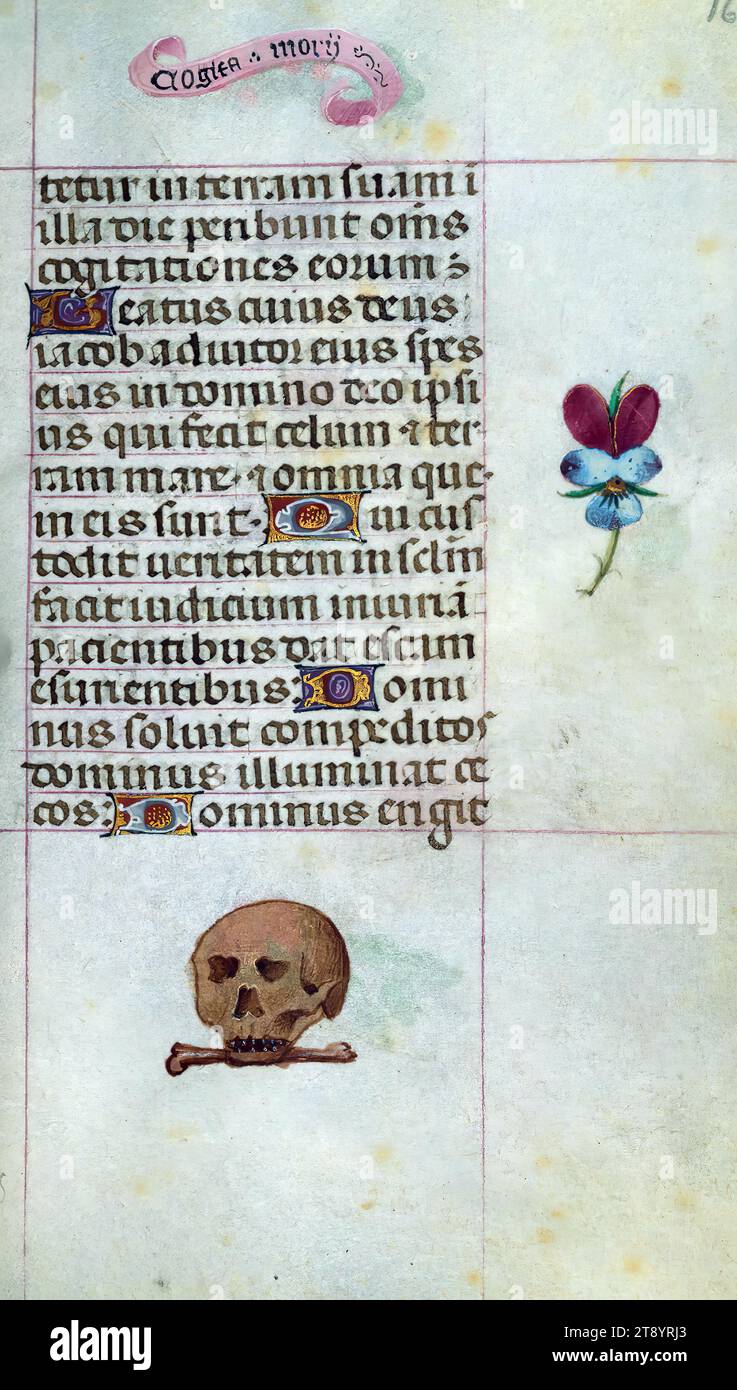 16
Cogita : morij
tetur in terram suam i
illa die peribunt om̅s
cogitationes eorum
Beatus cuius deus
iacob adiutor eius spes
eius in domino deo ipsi
us qui fecit celum ⁊ ter-
ram mare ⁊ omnia que
in eis sunt. Qui cus
todit ueritatem in sclm̅
facit iudicium iniuria̅
pacientibus dat escam
esurientibus: Domi
nus soluit compeditos
dominus illuminat ce
cos: Dominus erigit
alamy
alamy
a
a
alamy
Image ID: 2T8YRJ3
www.alamy.com